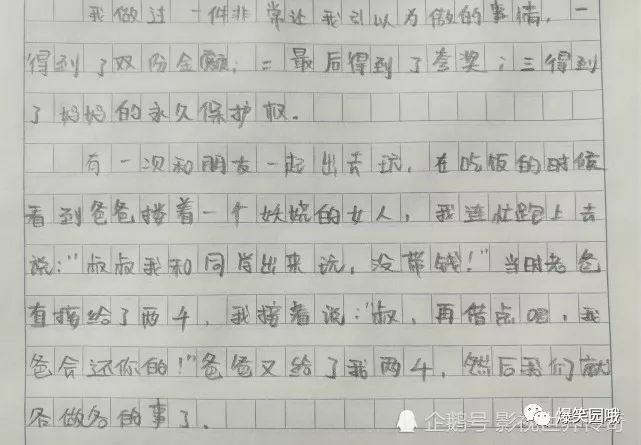 我做过一件非常让我引以为傲的事情，一
得到了双份金额；二最后得到了夸奖；三得到
了妈妈的永久保护权。
有一次和朋友一起出去玩，在吃饭的时候
看到爸爸搂着一个妖娆的女人，我连忙跑上去
说："叔叔我和同学出来玩，没带钱！"当时老爸
直接给了两千，我接着说："叔，再借点吧，我
爸会还你的！"爸爸又给了我两千，然后我们就
各做各的事了。
企鹅号 影视
爆笑园哦